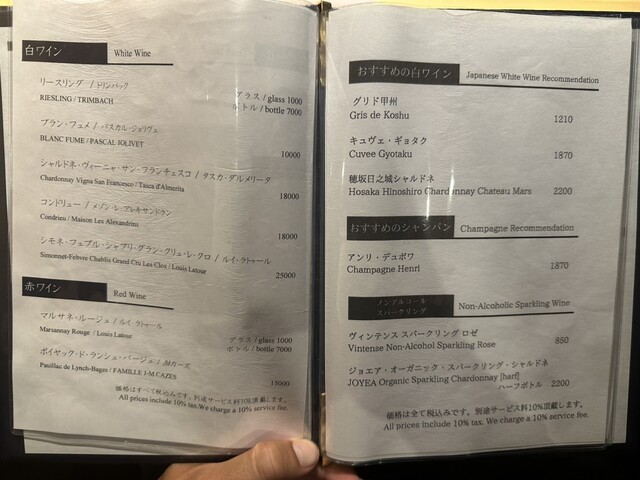 白ワイン
White Wine
リースリング / トリンバック
RIESLING / TRIMBACH
グラス / glass 1000
ボトル / bottle 7000
ブラン・フュメ / パスカル・ジョリヴェ
BLANC FUME / PASCAL JOLIVET
10000
シャルドネ・ヴィーニャ・サン・フランチェスコ / タスカ・ダルメリータ
Chardonnay Vigna San Francesco / Tasca d'Almerita
18000
コンドリュー / メゾン・レ・アレキサンドラン
Condrieu / Maison Les Alexandrins
18000
シモネ・フェブル・シャブリ・グラン・クリュ・レ・クロ / ルイ・ラトゥール
Simonnet-Febvre Chablis Grand Cru Les Clos / Louis Latour
25000
赤ワイン
Red Wine
マルサネ・ルージュ / ルイ・ラトゥール
Marsannay Rouge / Louis Latour
グラス / glass 1000
ボトル / bottle 7000
ポイヤック・ド・ランシュ・バージュ /
Pauillac de Lynch-Bages / FAMILLE J-M CAZES
15000
価格はすべて税込みです。別途サービス料10%頂戴します。
All prices include 10% tax.We charge a 10% service fee.
おすすめの白ワイン
Japanese White Wine Recommendation
グリド甲州
Gris de Koshu
1210
キュヴェ・ギョタク
Cuvee Gyotaku
1870
穂坂日之城シャルドネ
Hosaka Hinoshiro Chardonnay Chateau Mars 2200
おすすめのシャンパン
Champagne Recommendation
アンリ・デュボワ
Champagne Henri
1870
ノンアルコール
スパークリング
Non-Alcoholic Sparkling Wine
ヴィンテンス スパークリング ロゼ
Vintense Non-Alcohol Sparkling Rose
850
ジョエア・オーガニック・スパークリング・シャルドネ
JOYEA Organic Sparkling Chardonnay [harf]
ハーフボトル 2200
価格は全て税込みです。別途サービス料10%頂戴します。
All prices include 10% tax. We charge a 10% service fee.